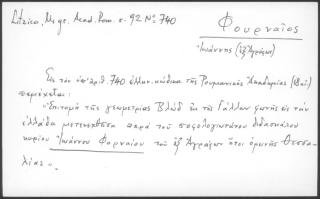 Litzica, Ms gr. Acad. Rom. σ. 92 Nº 740
Φουρναῖος
Ἰωάννης (ἐξ Ἀγράφων)
Εἰς τὸν ὑπ' ἀριθ. 740 ἑλλην. κώδικα τῆς Ρουμανικῆς Ἀκαδημίας (18 αἰ.)
περιέχεται:
"Ἐπιτομὴ τῆς γεωμετρίας Βλὼδ ἐκ τῆς Γάλλων φωνῆς εἰς τὴν
ἑλλάδα μετενεχθεῖσα παρὰ τοῦ σοφολογιωτάτου διδασκάλου
κυρίου Ἰωάννου Φορναίου τοῦ ἐξ Ἀγράφων ἤτοι ὀρεινῆς Θεσσα-
λίας".